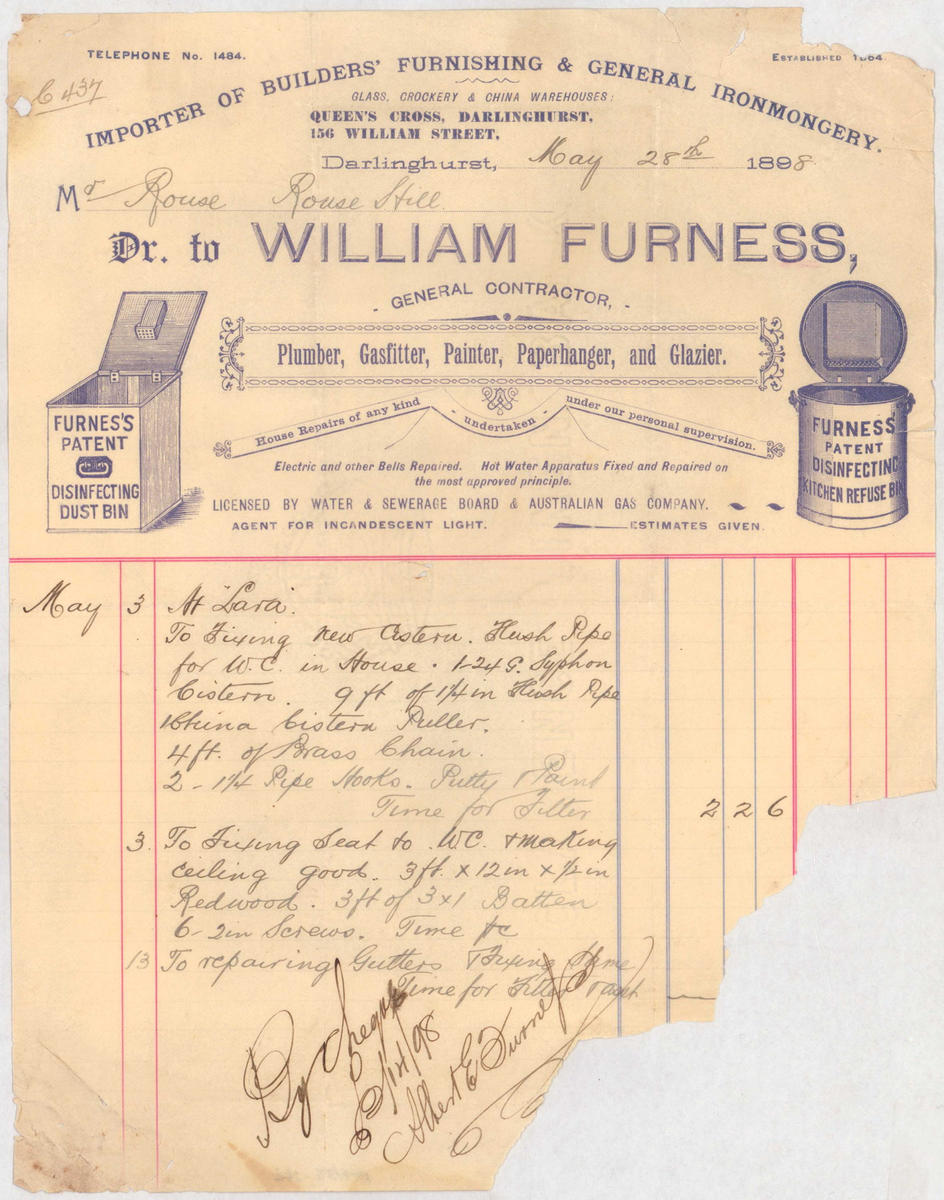 TELEPHONE No. 1484.
ESTABLISHED 1864.
C 437
IMPORTER OF BUILDERS' FURNISHING & GENERAL IRONMONGERY.
GLASS, CROCKERY & CHINA WAREHOUSES:
QUEEN'S CROSS, DARLINGHURST,
156 WILLIAM STREET,
Darlinghurst, May 28th 1898
Mr Rouse Rouse Hill
Dr. to WILLIAM FURNESS,
GENERAL CONTRACTOR,
Plumber, Gasfitter, Painter, Paperhanger, and Glazier.
House Repairs of any kind - undertaken - under our personal supervision.
FURNES'S
PATENT
DISINFECTING
DUST BIN
FURNESS'
PATENT
DISINFECTING
KITCHEN REFUSE BIN
Electric and other Bells Repaired. Hot Water Apparatus Fixed and Repaired on
the most approved principle.
LICENSED BY WATER & SEWERAGE BOARD & AUSTRALIAN GAS COMPANY.
AGENT FOR INCANDESCENT LIGHT. ESTIMATES GIVEN.
May 3 At "Lara".
To Fixing new Cistern. Flush Pipe
for W.C. in House. 1-24 G. Syphon
Cistern. 9 ft of 1 1/4 in Flush Pipe
1 China Cistern Puller.
4 ft. of Brass Chain.
2 - 1 1/4 Pipe Hooks. Putty & Paint
Time for Fitter 2 2 6
3 To Fixing Seat to W.C. & making
ceiling good. 3 ft. x 12 in x 1/2 in
Redwood. 3 ft of 3 x 1 Batten
6 - 2 in Screws. Time &c
13 To repairing Gutters & Fixing Same
Time for Fitter &
By Cheque
/98
Albert E Furness